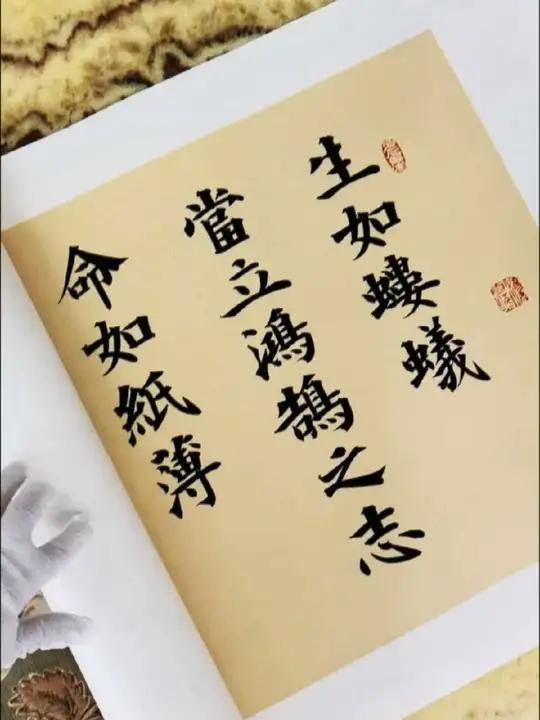 生如螻蟻
當立鴻鵠之志
命如紙薄